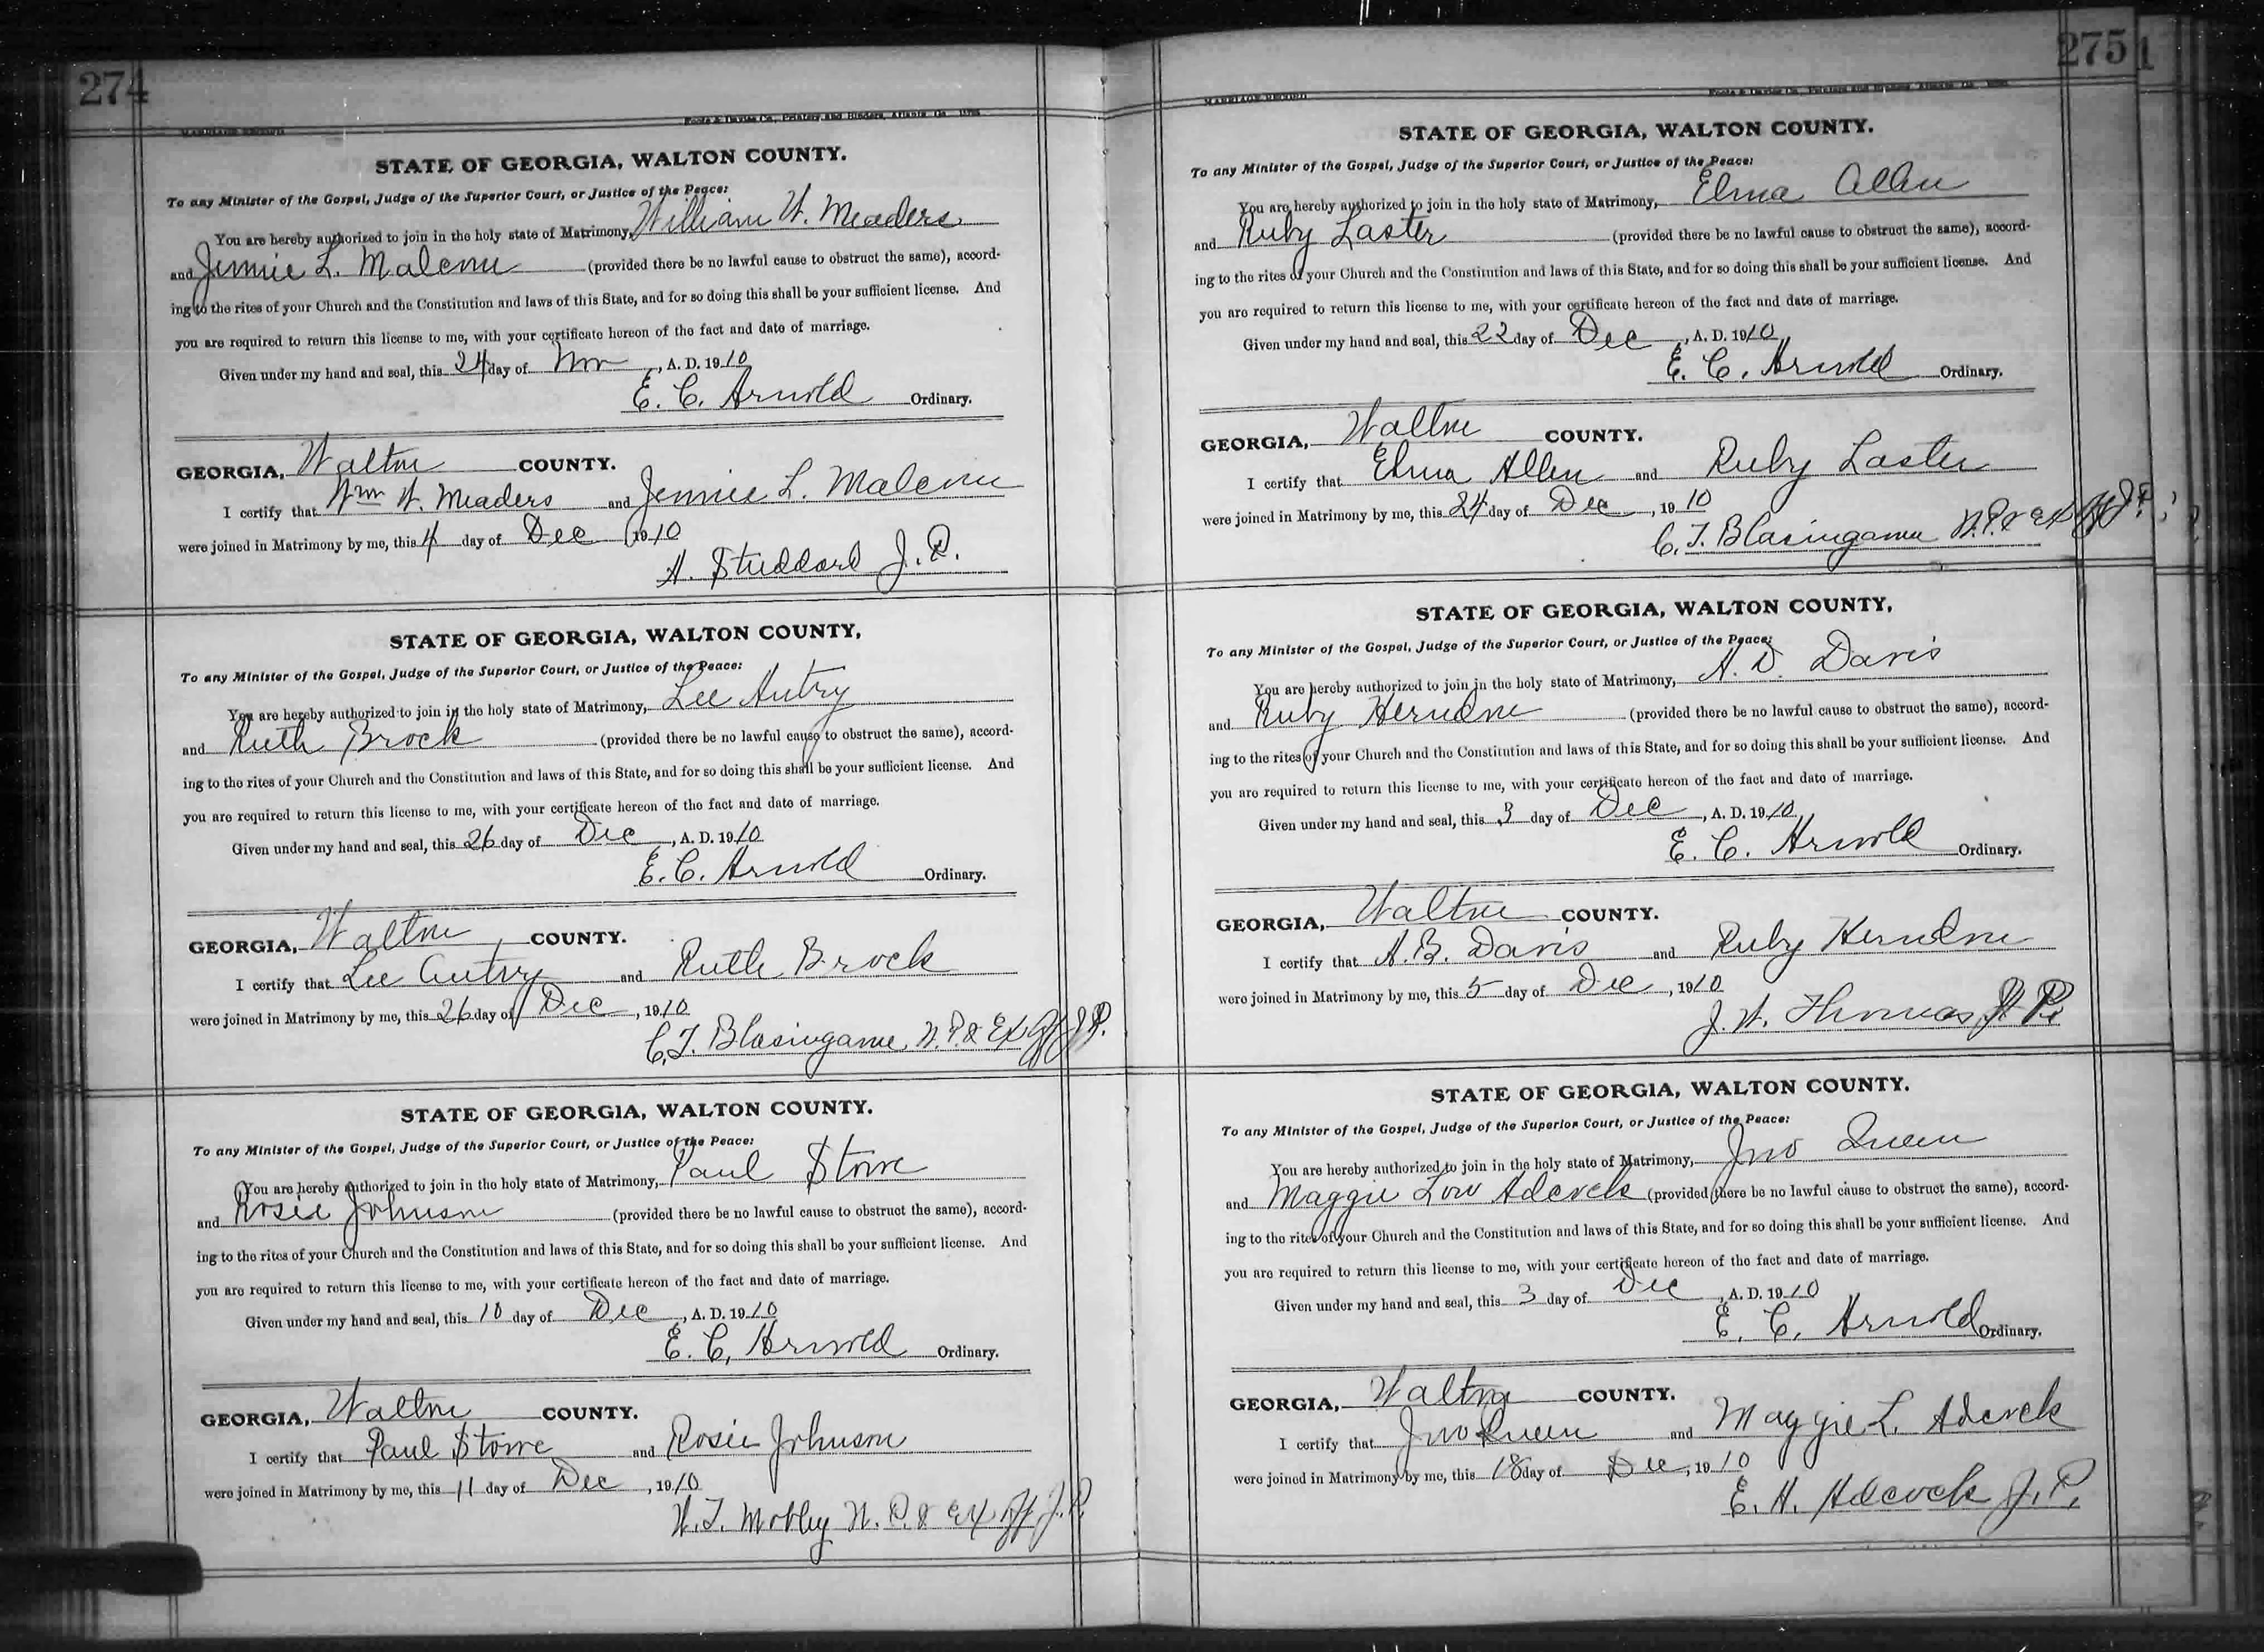 274
MARRIAGE RECORD
Foote & Davies Co., Printers and Binders, Atlanta, Ga.
STATE OF GEORGIA, WALTON COUNTY.
To any Minister of the Gospel, Judge of the Superior Court, or Justice of the Peace:
You are hereby authorized to join in the holy state of Matrimony, William W. Meaders
and Jennie L. Malcom (provided there be no lawful cause to obstruct the same), accord-
ing to the rites of your Church and the Constitution and laws of this State, and for so doing this shall be your sufficient license. And
you are required to return this license to me, with your certificate hereon of the fact and date of marriage.
Given under my hand and seal, this 24 day of Nov, A. D. 1910
E. C. Arnold Ordinary.
GEORGIA, Walton COUNTY.
I certify that Wm W. Meaders and Jennie L. Malcom
were joined in Matrimony by me, this 4 day of Dec 1910
A. Studdard J. P.
STATE OF GEORGIA, WALTON COUNTY,
To any Minister of the Gospel, Judge of the Superior Court, or Justice of the Peace:
You are hereby authorized to join in the holy state of Matrimony, Lee Autry
and Ruth Brock (provided there be no lawful cause to obstruct the same), accord-
ing to the rites of your Church and the Constitution and laws of this State, and for so doing this shall be your sufficient license. And
you are required to return this license to me, with your certificate hereon of the fact and date of marriage.
Given under my hand and seal, this 26 day of Dec, A. D. 1910
E. C. Arnold Ordinary.
GEORGIA, Walton COUNTY.
I certify that Lee Autry and Ruth Brock
were joined in Matrimony by me, this 26 day of Dec, 1910
C. T. Blasingame, N. P. & Ex Off J. P.
STATE OF GEORGIA, WALTON COUNTY.
To any Minister of the Gospel, Judge of the Superior Court, or Justice of the Peace:
You are hereby authorized to join in the holy state of Matrimony, Paul Stowe
and Rosie Johnson (provided there be no lawful cause to obstruct the same), accord-
ing to the rites of your Church and the Constitution and laws of this State, and for so doing this shall be your sufficient license. And
you are required to return this license to me, with your certificate hereon of the fact and date of marriage.
Given under my hand and seal, this 10 day of Dec, A. D. 1910
E. C. Arnold Ordinary.
GEORGIA, Walton COUNTY.
I certify that Paul Stowe and Rosie Johnson
were joined in Matrimony by me, this 11 day of Dec, 1910
W. T. Mobley N. P. & Ex Off J. P.
275
MARRIAGE RECORD
Foote & Davies Co., Printers and Binders, Atlanta, Ga.
STATE OF GEORGIA, WALTON COUNTY.
To any Minister of the Gospel, Judge of the Superior Court, or Justice of the Peace:
You are hereby authorized to join in the holy state of Matrimony, Elma Allen
and Ruby Laster (provided there be no lawful cause to obstruct the same), accord-
ing to the rites of your Church and the Constitution and laws of this State, and for so doing this shall be your sufficient license. And
you are required to return this license to me, with your certificate hereon of the fact and date of marriage.
Given under my hand and seal, this 22 day of Dec, A. D. 1910
E. C. Arnold Ordinary.
GEORGIA, Walton COUNTY.
I certify that Elma Allen and Ruby Laster
were joined in Matrimony by me, this 24 day of Dec, 1910
C. T. Blasingame N. P. & Ex Off J. P.
STATE OF GEORGIA, WALTON COUNTY,
To any Minister of the Gospel, Judge of the Superior Court, or Justice of the Peace:
You are hereby authorized to join in the holy state of Matrimony, A. D. Davis
and Ruby Herndon (provided there be no lawful cause to obstruct the same), accord-
ing to the rites of your Church and the Constitution and laws of this State, and for so doing this shall be your sufficient license. And
you are required to return this license to me, with your certificate hereon of the fact and date of marriage.
Given under my hand and seal, this 3 day of Dec, A. D. 1910
E. C. Arnold Ordinary.
GEORGIA, Walton COUNTY.
I certify that A. B. Davis and Ruby Herndon
were joined in Matrimony by me, this 5 day of Dec, 1910
J. W. Thomas P.
STATE OF GEORGIA, WALTON COUNTY.
To any Minister of the Gospel, Judge of the Superior Court, or Justice of the Peace:
You are hereby authorized to join in the holy state of Matrimony, Jno Queen
and Maggie Low Adcock (provided there be no lawful cause to obstruct the same), accord-
ing to the rites of your Church and the Constitution and laws of this State, and for so doing this shall be your sufficient license. And
you are required to return this license to me, with your certificate hereon of the fact and date of marriage.
Given under my hand and seal, this 3 day of Dec, A. D. 1910
E. C. Arnold Ordinary.
GEORGIA, Walton COUNTY.
I certify that Jno Queen and Maggie L. Adcock
were joined in Matrimony by me, this 18 day of Dec, 1910
E. H. Adcock J. P.